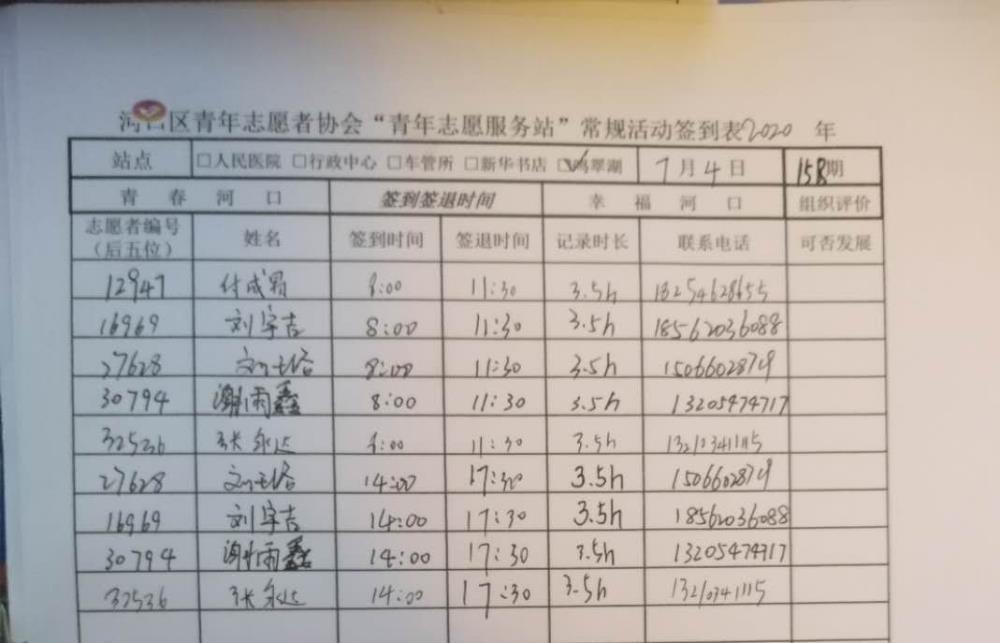 河口区青年志愿者协会“青年志愿服务站”常规活动签到表2020 年
站点 □人民医院 □行政中心 □车管所 □新华书店 ☑鸣翠湖 7月4日 158期
青春河口 签到签退时间 幸福河口 组织评价
志愿者编号（后五位） 姓名 签到时间 签退时间 记录时长 联系电话 可否发展
12947 付成霜 8:00 11:30 3.5h 18254628655
16969 刘宇吉 8:00 11:30 3.5h 18562036088
27628 8:00 11:30 3.5h
30794 谢雨鑫 8:00 11:30 3.5h 13205474717
32536 张永达 8:00 11:30 3.5h 13210341115
27628 14:00 17:30 3.5h
16969 刘宇吉 14:00 17:30 3.5h 18562036088
30794 谢雨鑫 14:00 17:30 3.5h 13205474717
32536 张永达 14:00 17:30 3.5h 13210341115